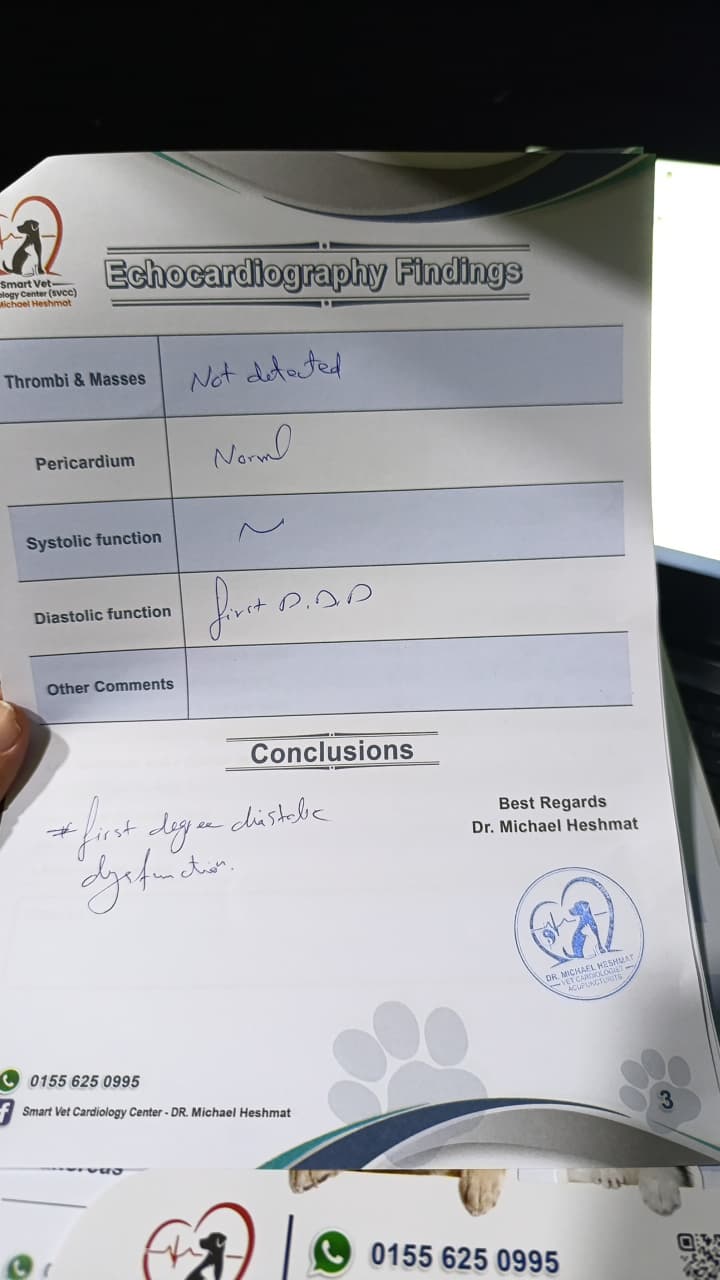 Smart Vet
ology Center (SVCC)
Michael Heshmat
Echocardiography Findings
Thrombi & Masses Not detected
Pericardium Normal
Systolic function N
Diastolic function first D.D.D
Other Comments
Conclusions
# first degree diastolic
dysfunction.
Best Regards
Dr. Michael Heshmat
DR. MICHAEL HESHMAT
VET CARDIOLOGIST
ACUPUNCTURITS
0155 625 0995
Smart Vet Cardiology Center - DR. Michael Heshmat
3
0155 625 0995